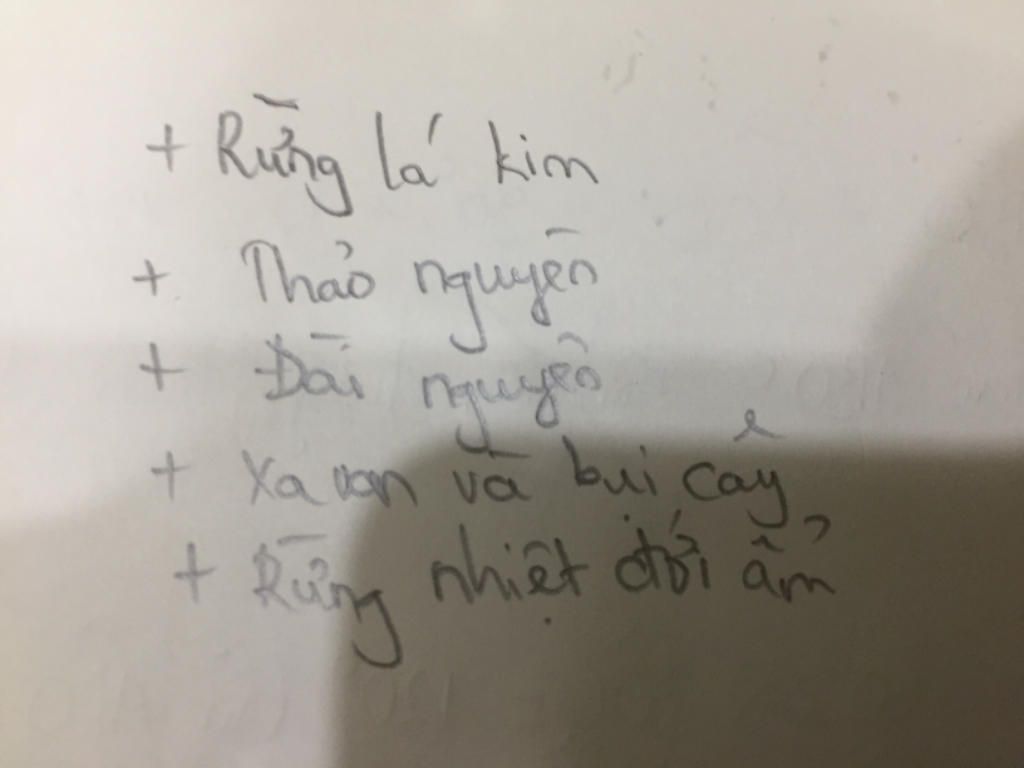 + Rừng lá kim
+ Thảo nguyên
+ Đài nguyên
+ Xa van và bụi cây
+ Rừng nhiệt đới ẩm